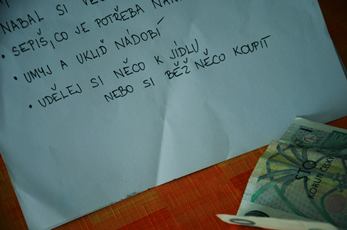 NABAL SI
• SEPIŠ, CO JE POTŘEBA
• UMYJ A UKLIĎ NÁDOBÍ
• UDĚLEJ SI NĚCO K JÍDLU
NEBO SI BĚŽ NĚCO KOUPIT
STO
KORUN